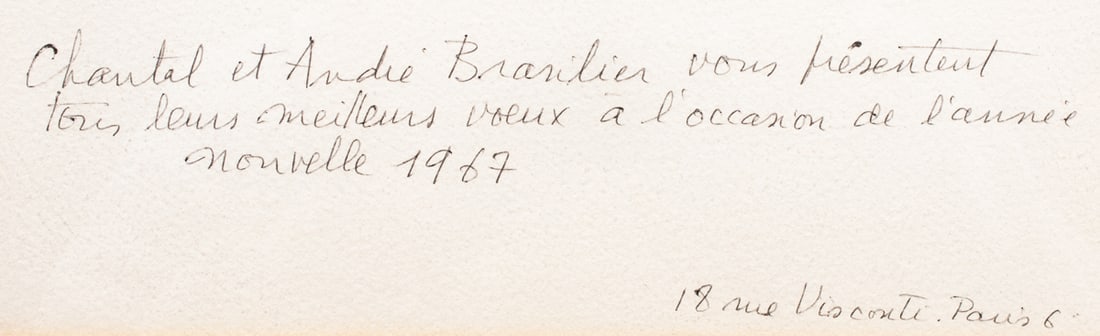 Chantal et André Brasilier vous présentent
tous leurs meilleurs voeux à l'occasion de l'année
nouvelle 1967
18 rue Visconti. Paris 6